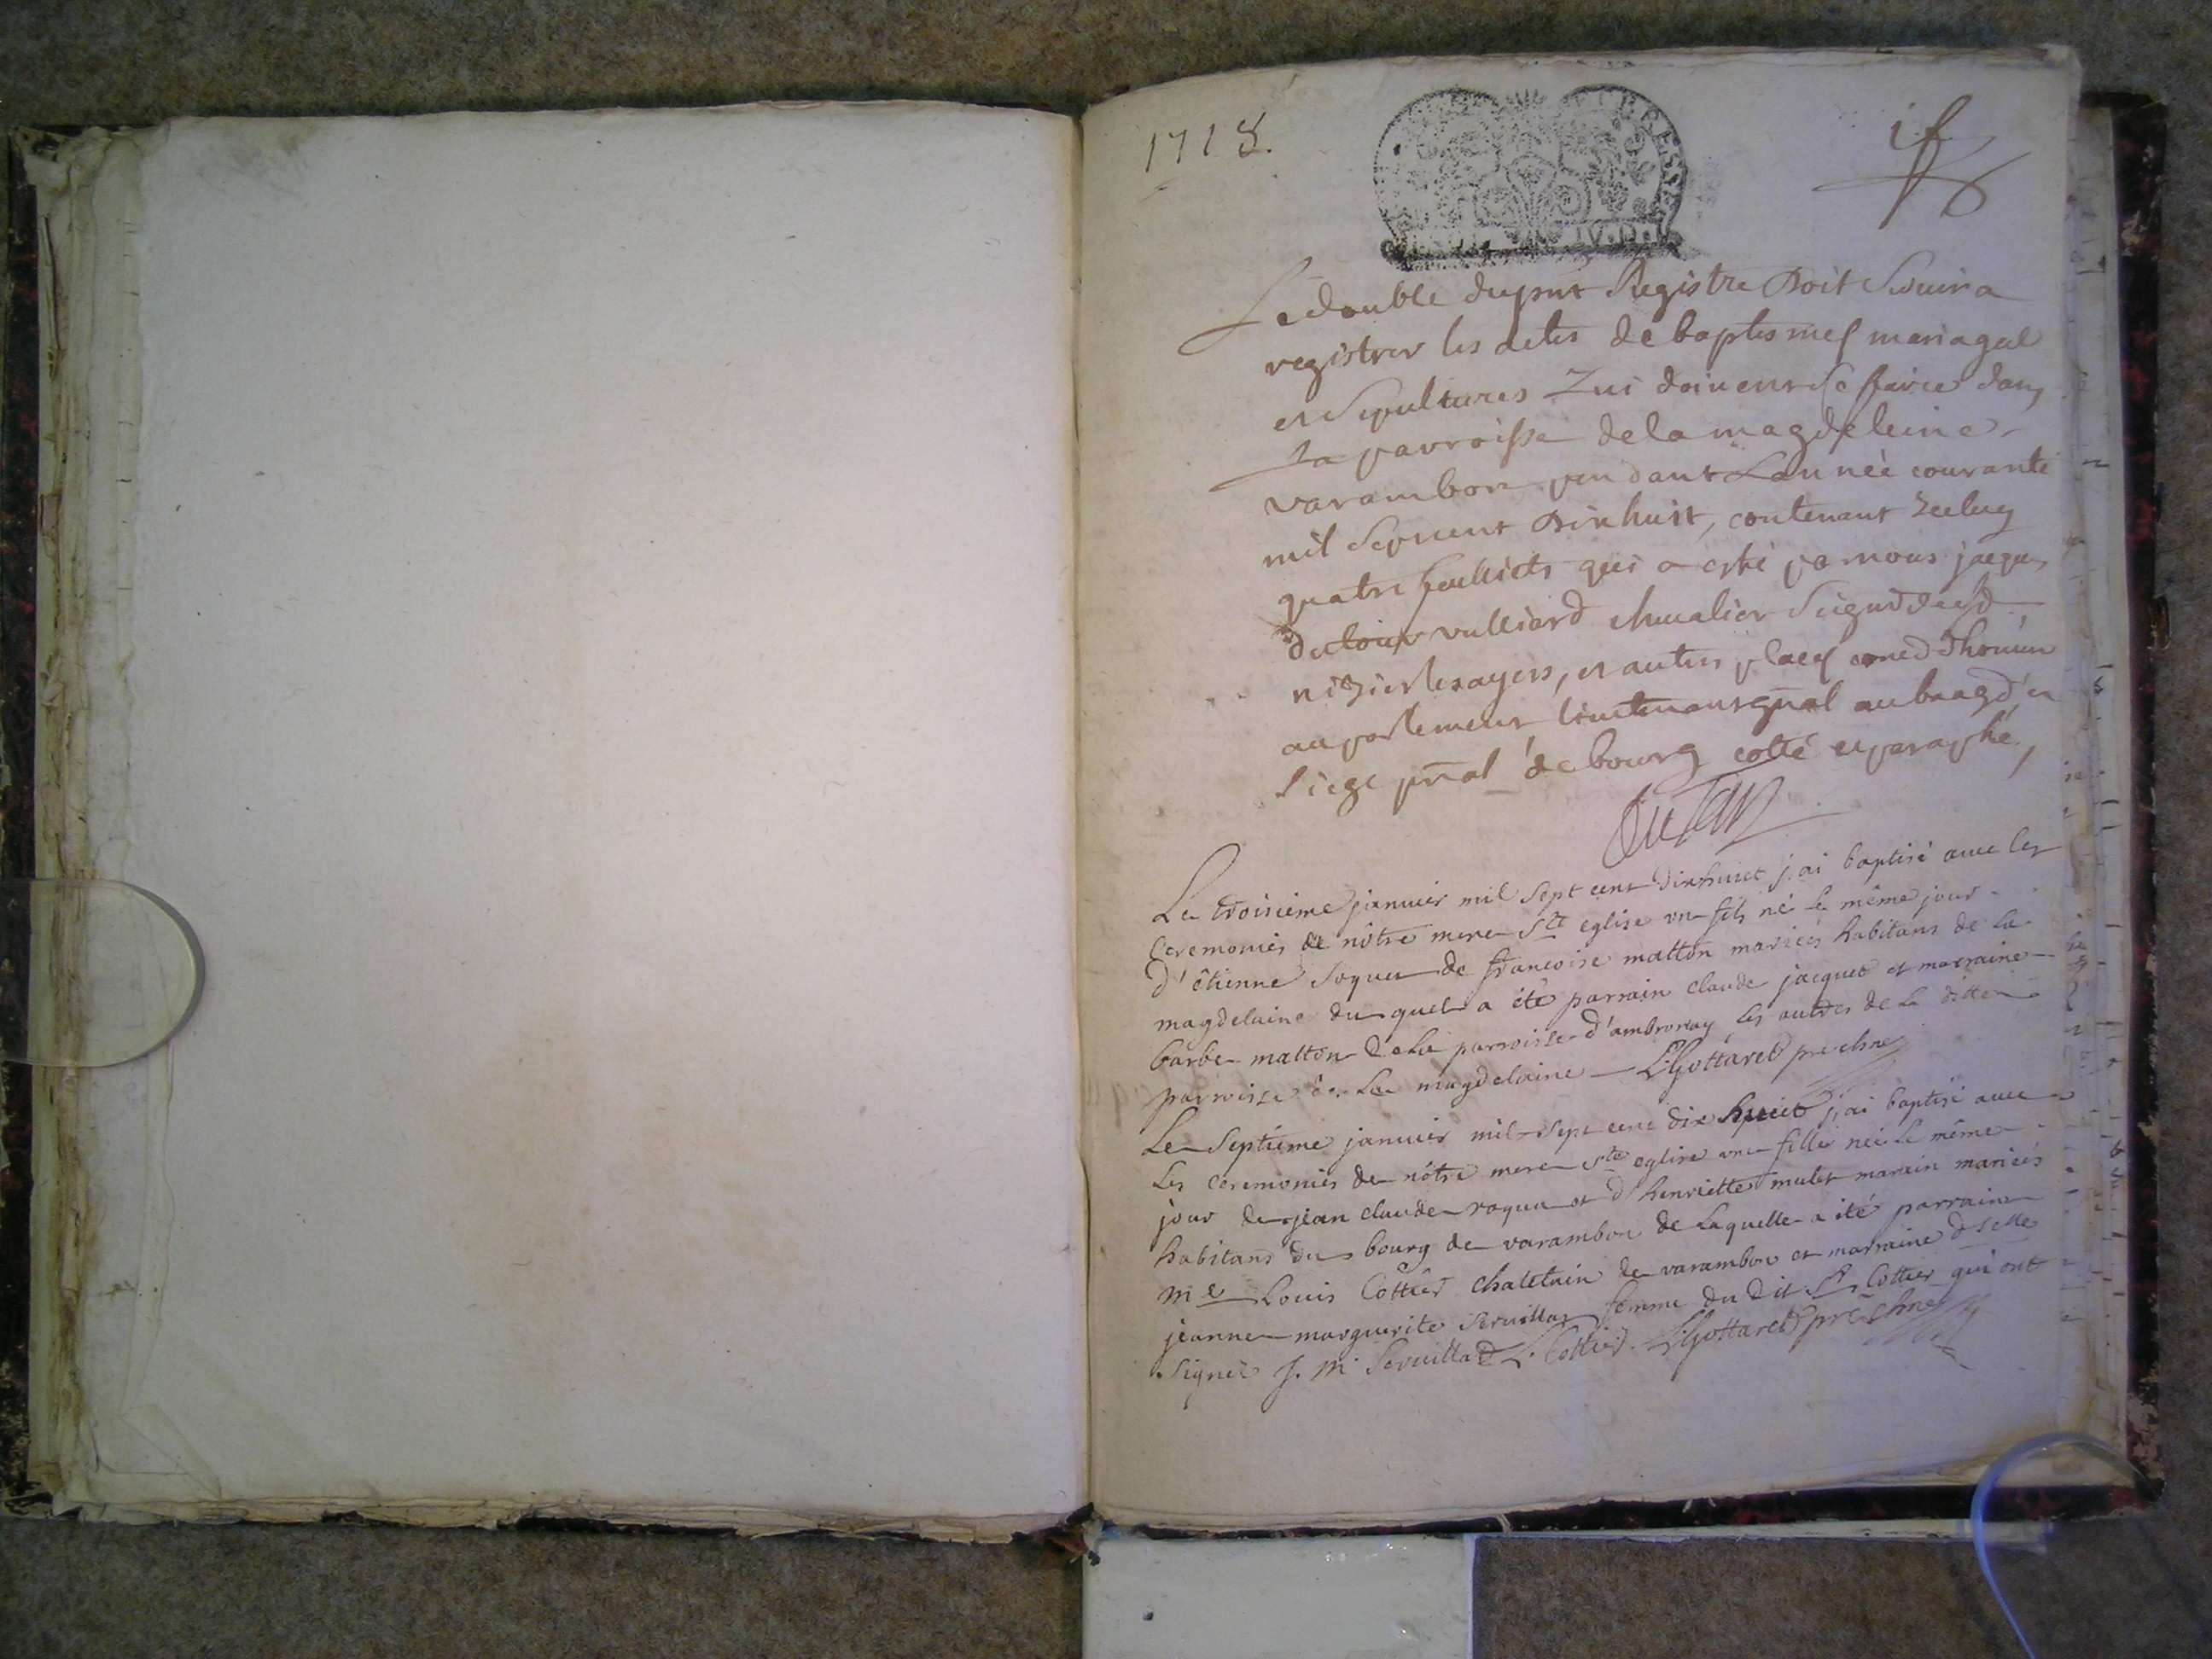 1718.
BRESSE
Le double du pnt Registre doit servir a
registrer les actes de baptesmes mariages
et sepultures qui doivent se faire dans
la parroisse de la magdeleine
varambon pendant L'année courante
mil sept cent dix huit, contenant
quatre feuillets qui a esté par nous jacques
vulliard chevalier Seigr de St
nizier et autres places coner d'honneur
au parlement lieutenant gnal au baage et
siege pnal de bourg cotté et paraphé
Le troisieme janvier mil sept cent dix huict j'ai baptisé avec les
ceremonies de nôtre mere Ste eglise un fils né le même jour
d'êtienne de francoise matton mariées habitans de la
magdelaine du quel a été parrain claude jacquet et marraine
barbe matton de la parroisse d'ambronay les autres de la ditte
parroisse de La magdelaine Gottaret pre
Le Septiéme janvier mil sept cent dix huict j'ai baptisé avec
Les ceremonies de nôtre mere Ste eglise une fille née le même
jour de jean claude et d'henriette mulet mariées
habitans du bourg de varambon de Laquelle a été parrain
me Louis Cottier chatelain de varambon et marraine dselle
jeanne marguerite femme du dit Sr Cottier qui ont
signé J. M. L. Cottier Gottaret pre